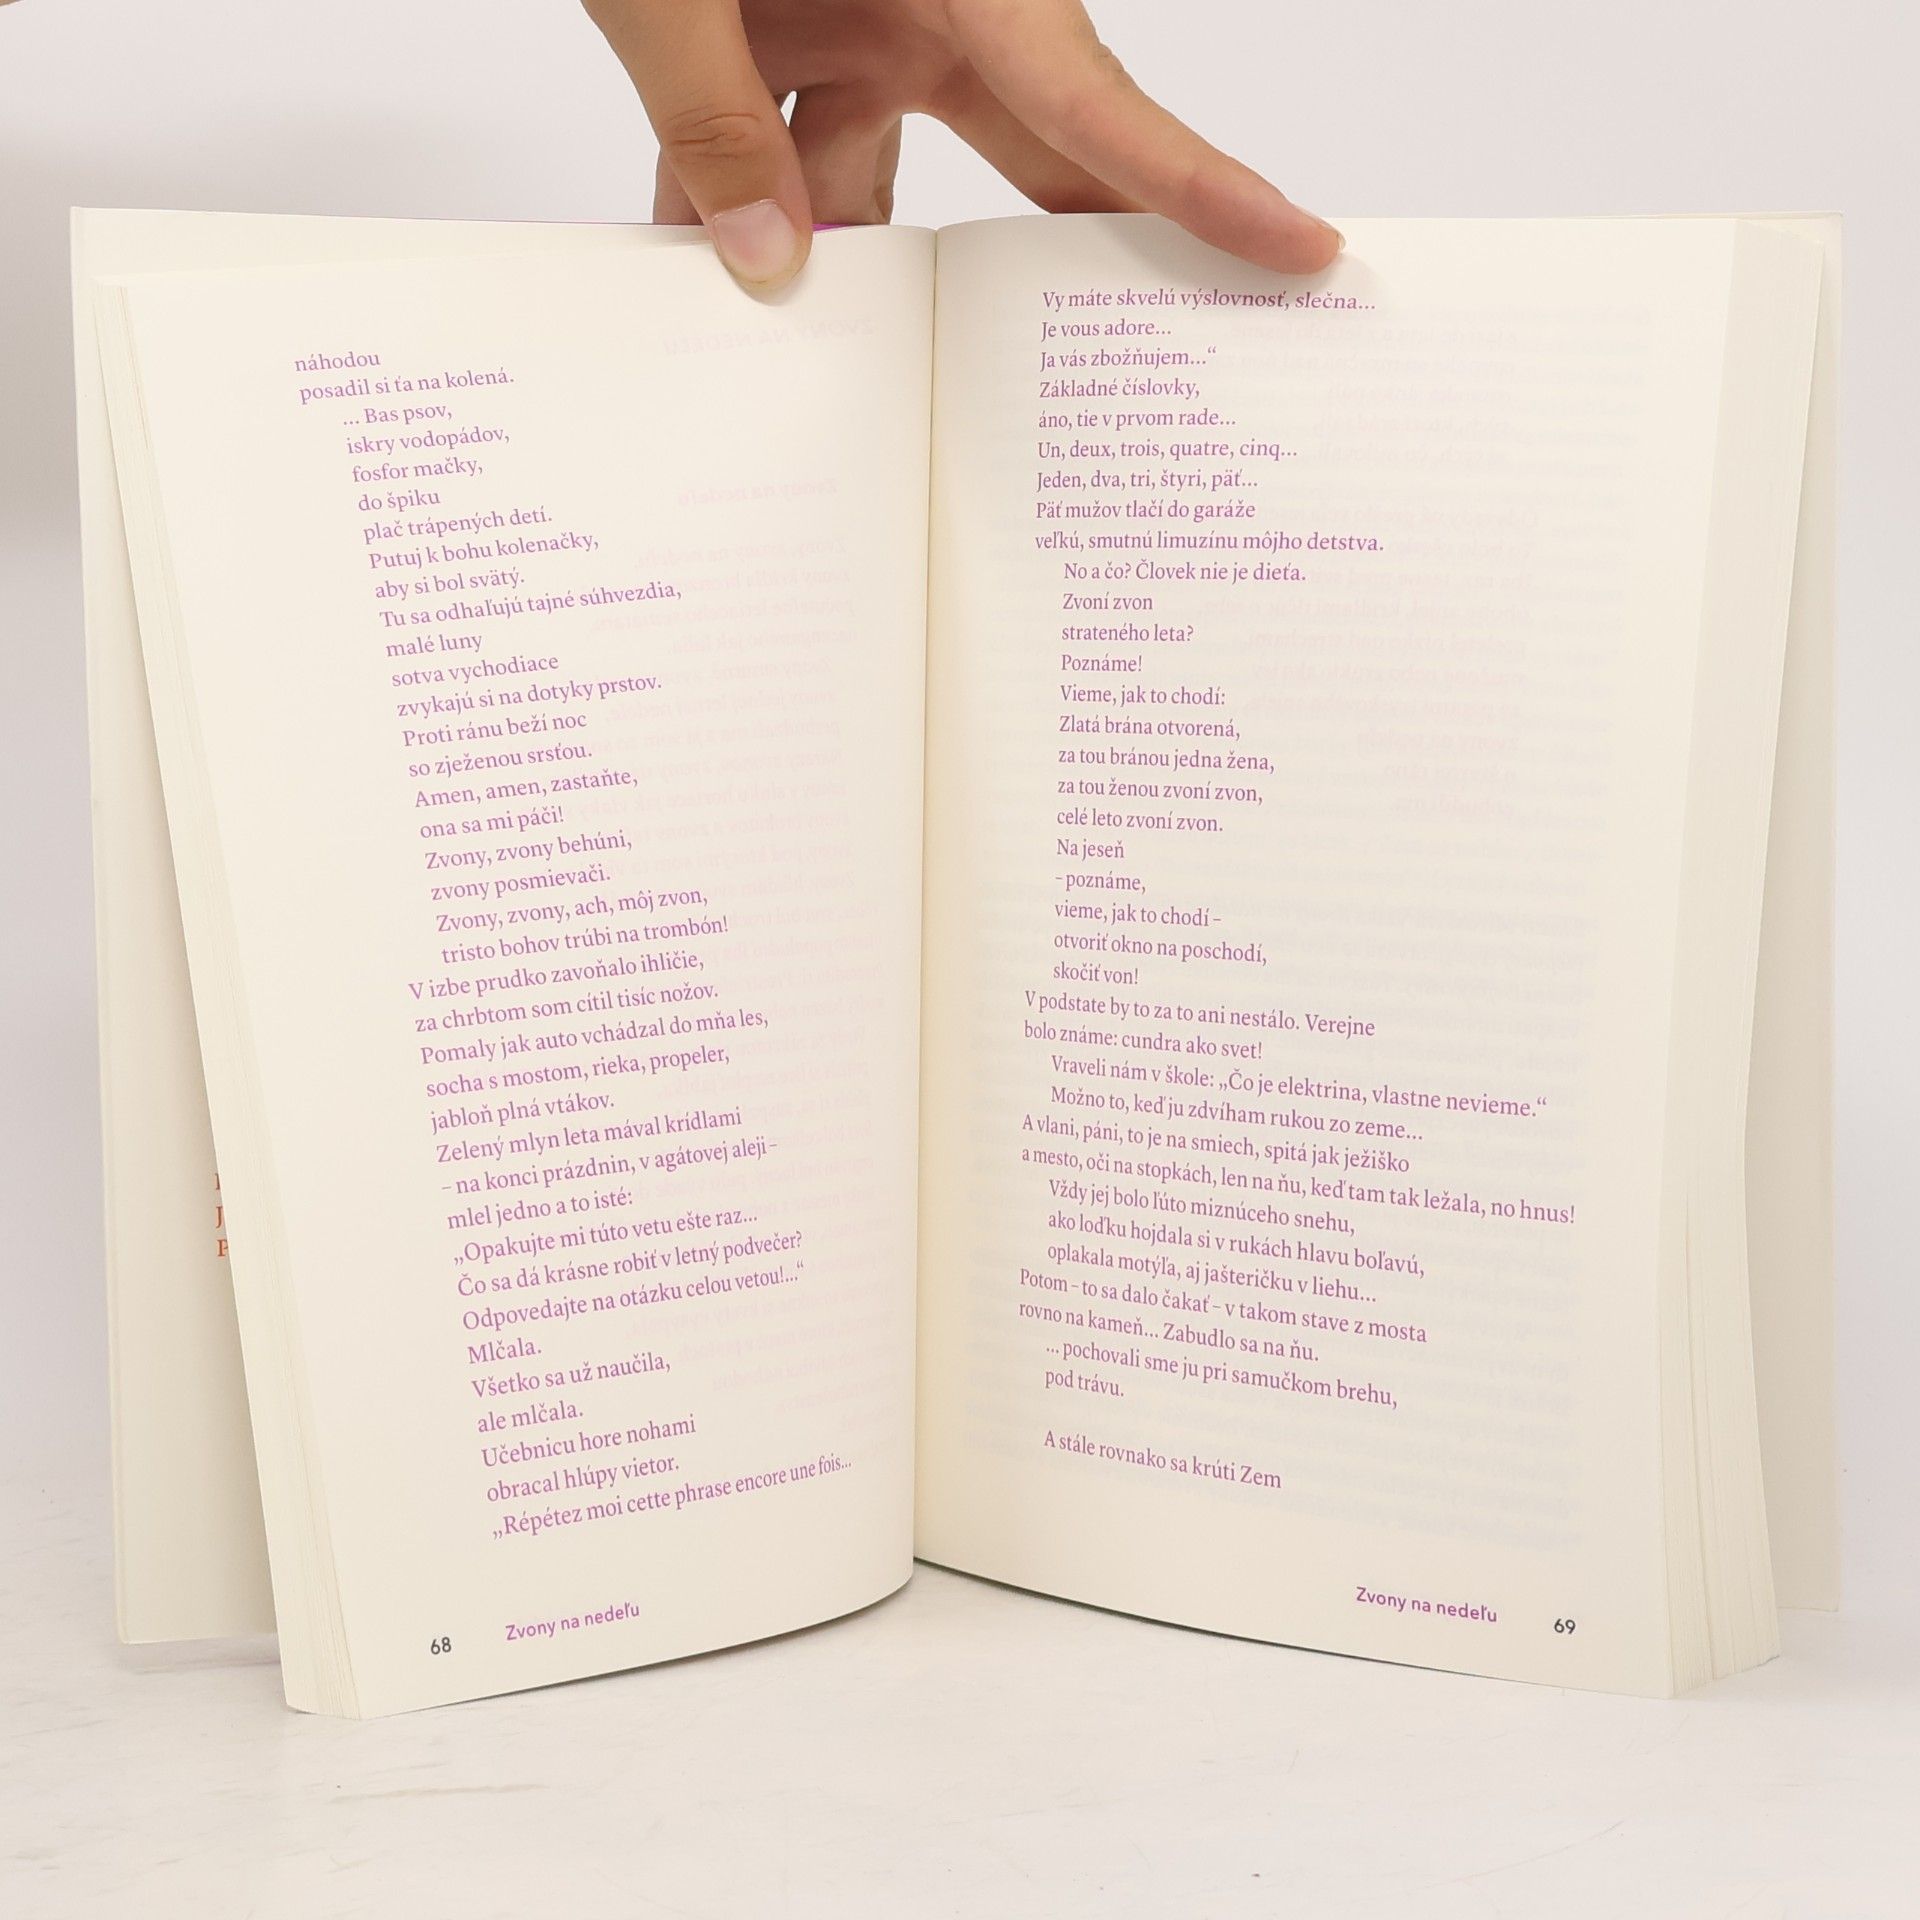 náhodou
posadil si ťa na kolená.
... Bas psov,
iskry vodopádov,
fosfor mačky,
do špiku
plač trápených detí.
Putuj k bohu kolenačky,
aby si bol svätý.
Tu sa odhaľujú tajné súhvezdia,
malé luny
sotva vychodiace
zvykajú si na dotyky prstov.
Proti ránu beží noc
so zježenou srsťou.
Amen, amen, zastaňte,
ona sa mi páči!
Zvony, zvony behúni,
zvony posmievači.
Zvony, zvony, ach, môj zvon,
tristo bohov trúbi na trombón!
V izbe prudko zavoňalo ihličie,
za chrbtom som cítil tisíc nožov.
Pomaly jak auto vchádzal do mňa les,
socha s mostom, rieka, propeler,
jabloň plná vtákov.
Zelený mlyn leta mával krídlami
– na konci prázdnin, v agátovej aleji –
mlel jedno a to isté:
„Opakujte mi túto vetu ešte raz...
Čo sa dá krásne robiť v letný podvečer?
Odpovedajte na otázku celou vetou!...“
Mlčala.
Všetko sa už naučila,
ale mlčala.
Učebnicu hore nohami
obracal hlúpy vietor.
„Répétez moi cette phrase encore une fois...
68 Zvony na nedeľu
Vy máte skvelú výslovnosť, slečna...
Je vous adore...
Ja vás zbožňujem...“
Základné číslovky,
áno, tie v prvom rade...
Un, deux, trois, quatre, cinq...
Jeden, dva, tri, štyri, päť...
Päť mužov tlačí do garáže
veľkú, smutnú limuzínu môjho detstva.
No a čo? Človek nie je dieťa.
Zvoní zvon
strateného leta?
Poznáme!
Vieme, jak to chodí:
Zlatá brána otvorená,
za tou bránou jedna žena,
za tou ženou zvoní zvon,
celé leto zvoní zvon.
Na jeseň
– poznáme,
vieme, jak to chodí –
otvoriť okno na poschodí,
skočiť von!
V podstate by to za to ani nestálo. Verejne
bolo známe: cundra ako svet!
Vraveli nám v škole: „Čo je elektrina, vlastne nevieme.“
Možno to, keď ju zdvíham rukou zo zeme...
A vlani, páni, to je na smiech, spitá jak ježiško
a mesto, oči na stopkách, len na ňu, keď tam tak ležala, no hnus!
Vždy jej bolo ľúto miznúceho snehu,
ako loďku hojdala si v rukách hlavu boľavú,
oplakala motýľa, aj jašteričku v liehu...
Potom – to sa dalo čakať – v takom stave z mosta
rovno na kameň... Zabudlo sa na ňu.
... pochovali sme ju pri samučkom brehu,
pod trávu.
A stále rovnako sa krúti Zem
Zvony na nedeľu 69